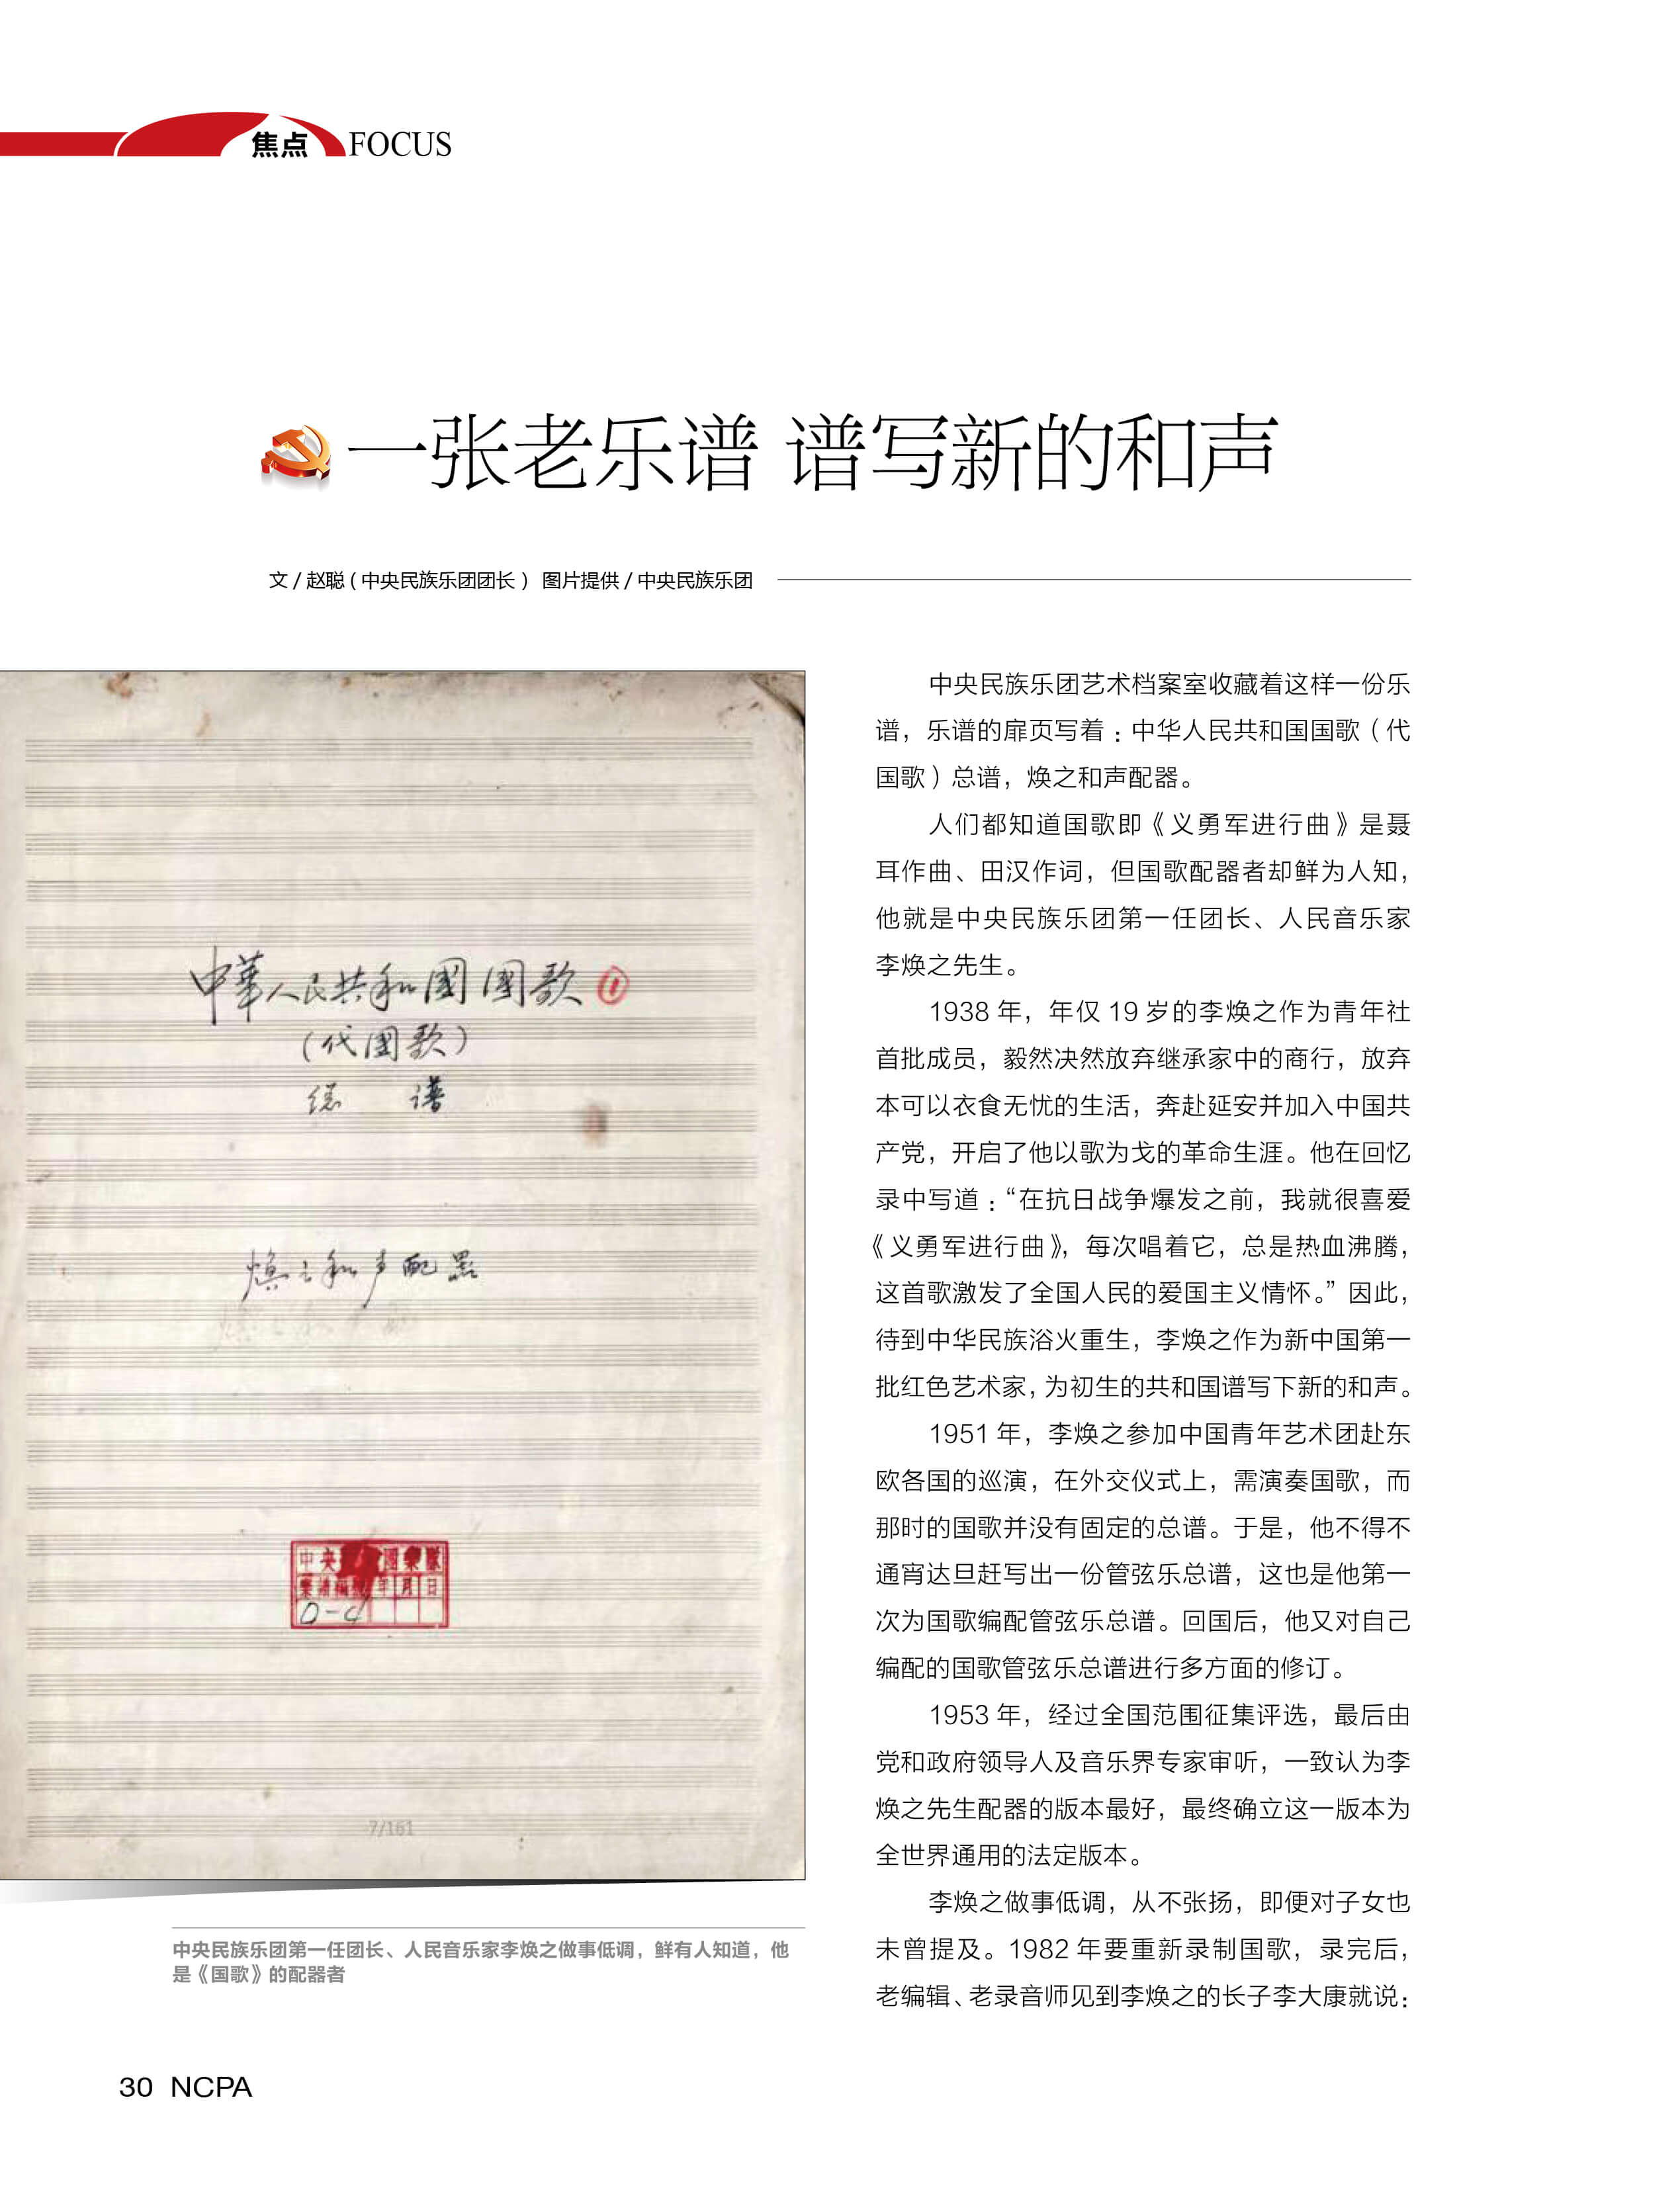 焦点 FOCUS
一张老乐谱 谱写新的和声
文 / 赵聪（中央民族乐团团长） 图片提供 / 中央民族乐团
中華人民共和國國歌 ①
（代國歌）
總 譜
煥之和声配器
中央 團樂隊
樂譜編號 年 月 日
D-4
7/161
中央民族乐团第一任团长、人民音乐家李焕之做事低调，鲜有人知道，他
是《国歌》的配器者
中央民族乐团艺术档案室收藏着这样一份乐
谱，乐谱的扉页写着：中华人民共和国国歌（代
国歌）总谱，焕之和声配器。
人们都知道国歌即《义勇军进行曲》是聂
耳作曲、田汉作词，但国歌配器者却鲜为人知，
他就是中央民族乐团第一任团长、人民音乐家
李焕之先生。
1938 年，年仅 19 岁的李焕之作为青年社
首批成员，毅然决然放弃继承家中的商行，放弃
本可以衣食无忧的生活，奔赴延安并加入中国共
产党，开启了他以歌为戈的革命生涯。他在回忆
录中写道：“在抗日战争爆发之前，我就很喜爱
《义勇军进行曲》，每次唱着它，总是热血沸腾，
这首歌激发了全国人民的爱国主义情怀。”因此，
待到中华民族浴火重生，李焕之作为新中国第一
批红色艺术家，为初生的共和国谱写下新的和声。
1951 年，李焕之参加中国青年艺术团赴东
欧各国的巡演，在外交仪式上，需演奏国歌，而
那时的国歌并没有固定的总谱。于是，他不得不
通宵达旦赶写出一份管弦乐总谱，这也是他第一
次为国歌编配管弦乐总谱。回国后，他又对自己
编配的国歌管弦乐总谱进行多方面的修订。
1953 年，经过全国范围征集评选，最后由
党和政府领导人及音乐界专家审听，一致认为李
焕之先生配器的版本最好，最终确立这一版本为
全世界通用的法定版本。
李焕之做事低调，从不张扬，即便对子女也
未曾提及。1982 年要重新录制国歌，录完后，
老编辑、老录音师见到李焕之的长子李大康就说：
30 NCPA